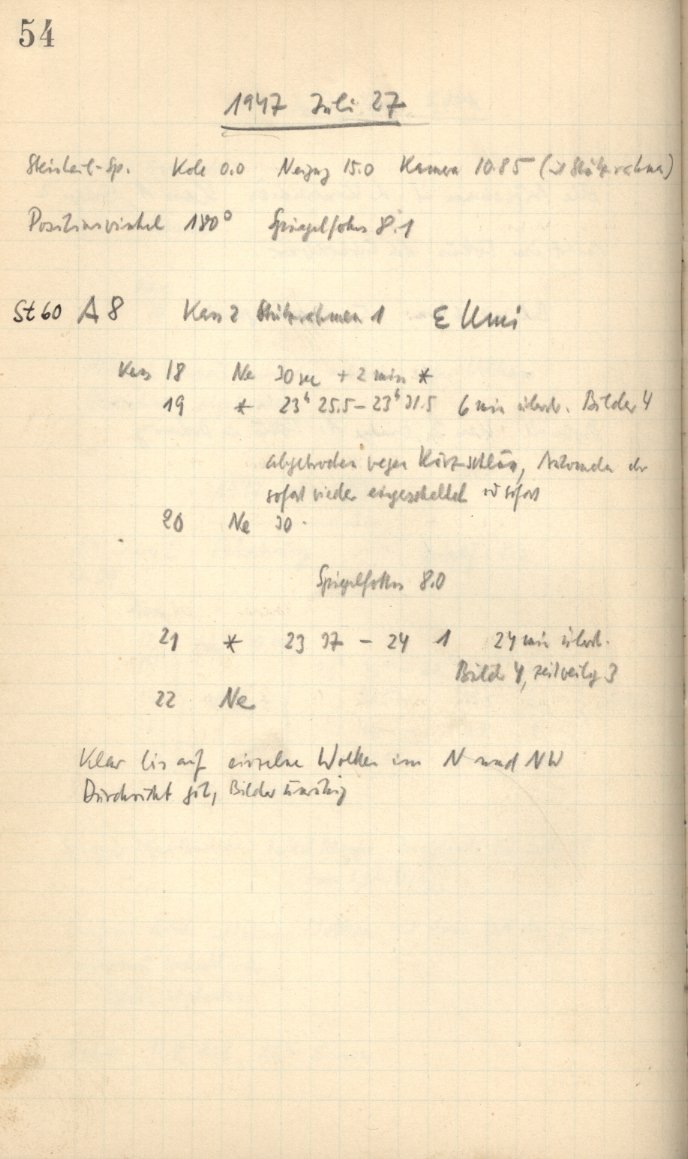 54
1947 Juli 27
Steinheil-Sp. Koll 0.0 Neigung 15.0 Kamera 10.85 (mit Stützrahmen)
Positionswinkel 180° Spiegelfokus 8.1
St 60 A 8 Kass 2 Stützrahmen 1 ε Umi
Kass 18 Ne 30 sec + 2 min *
19 * 23ʰ 25.5 – 23ʰ 31.5 6 min überb. Bilder 4
abgebrochen wegen Kurzschluß,
sofort wieder eingeschaltet
20 Ne 30
Spiegelfokus 8.0
21 * 23 37 – 24 1 24 min überb.
Bilder 4, zeitweilig 3
22 Ne
Klar bis auf einzelne Wolken im N und NW
Durchsicht gut, Bilder unruhig